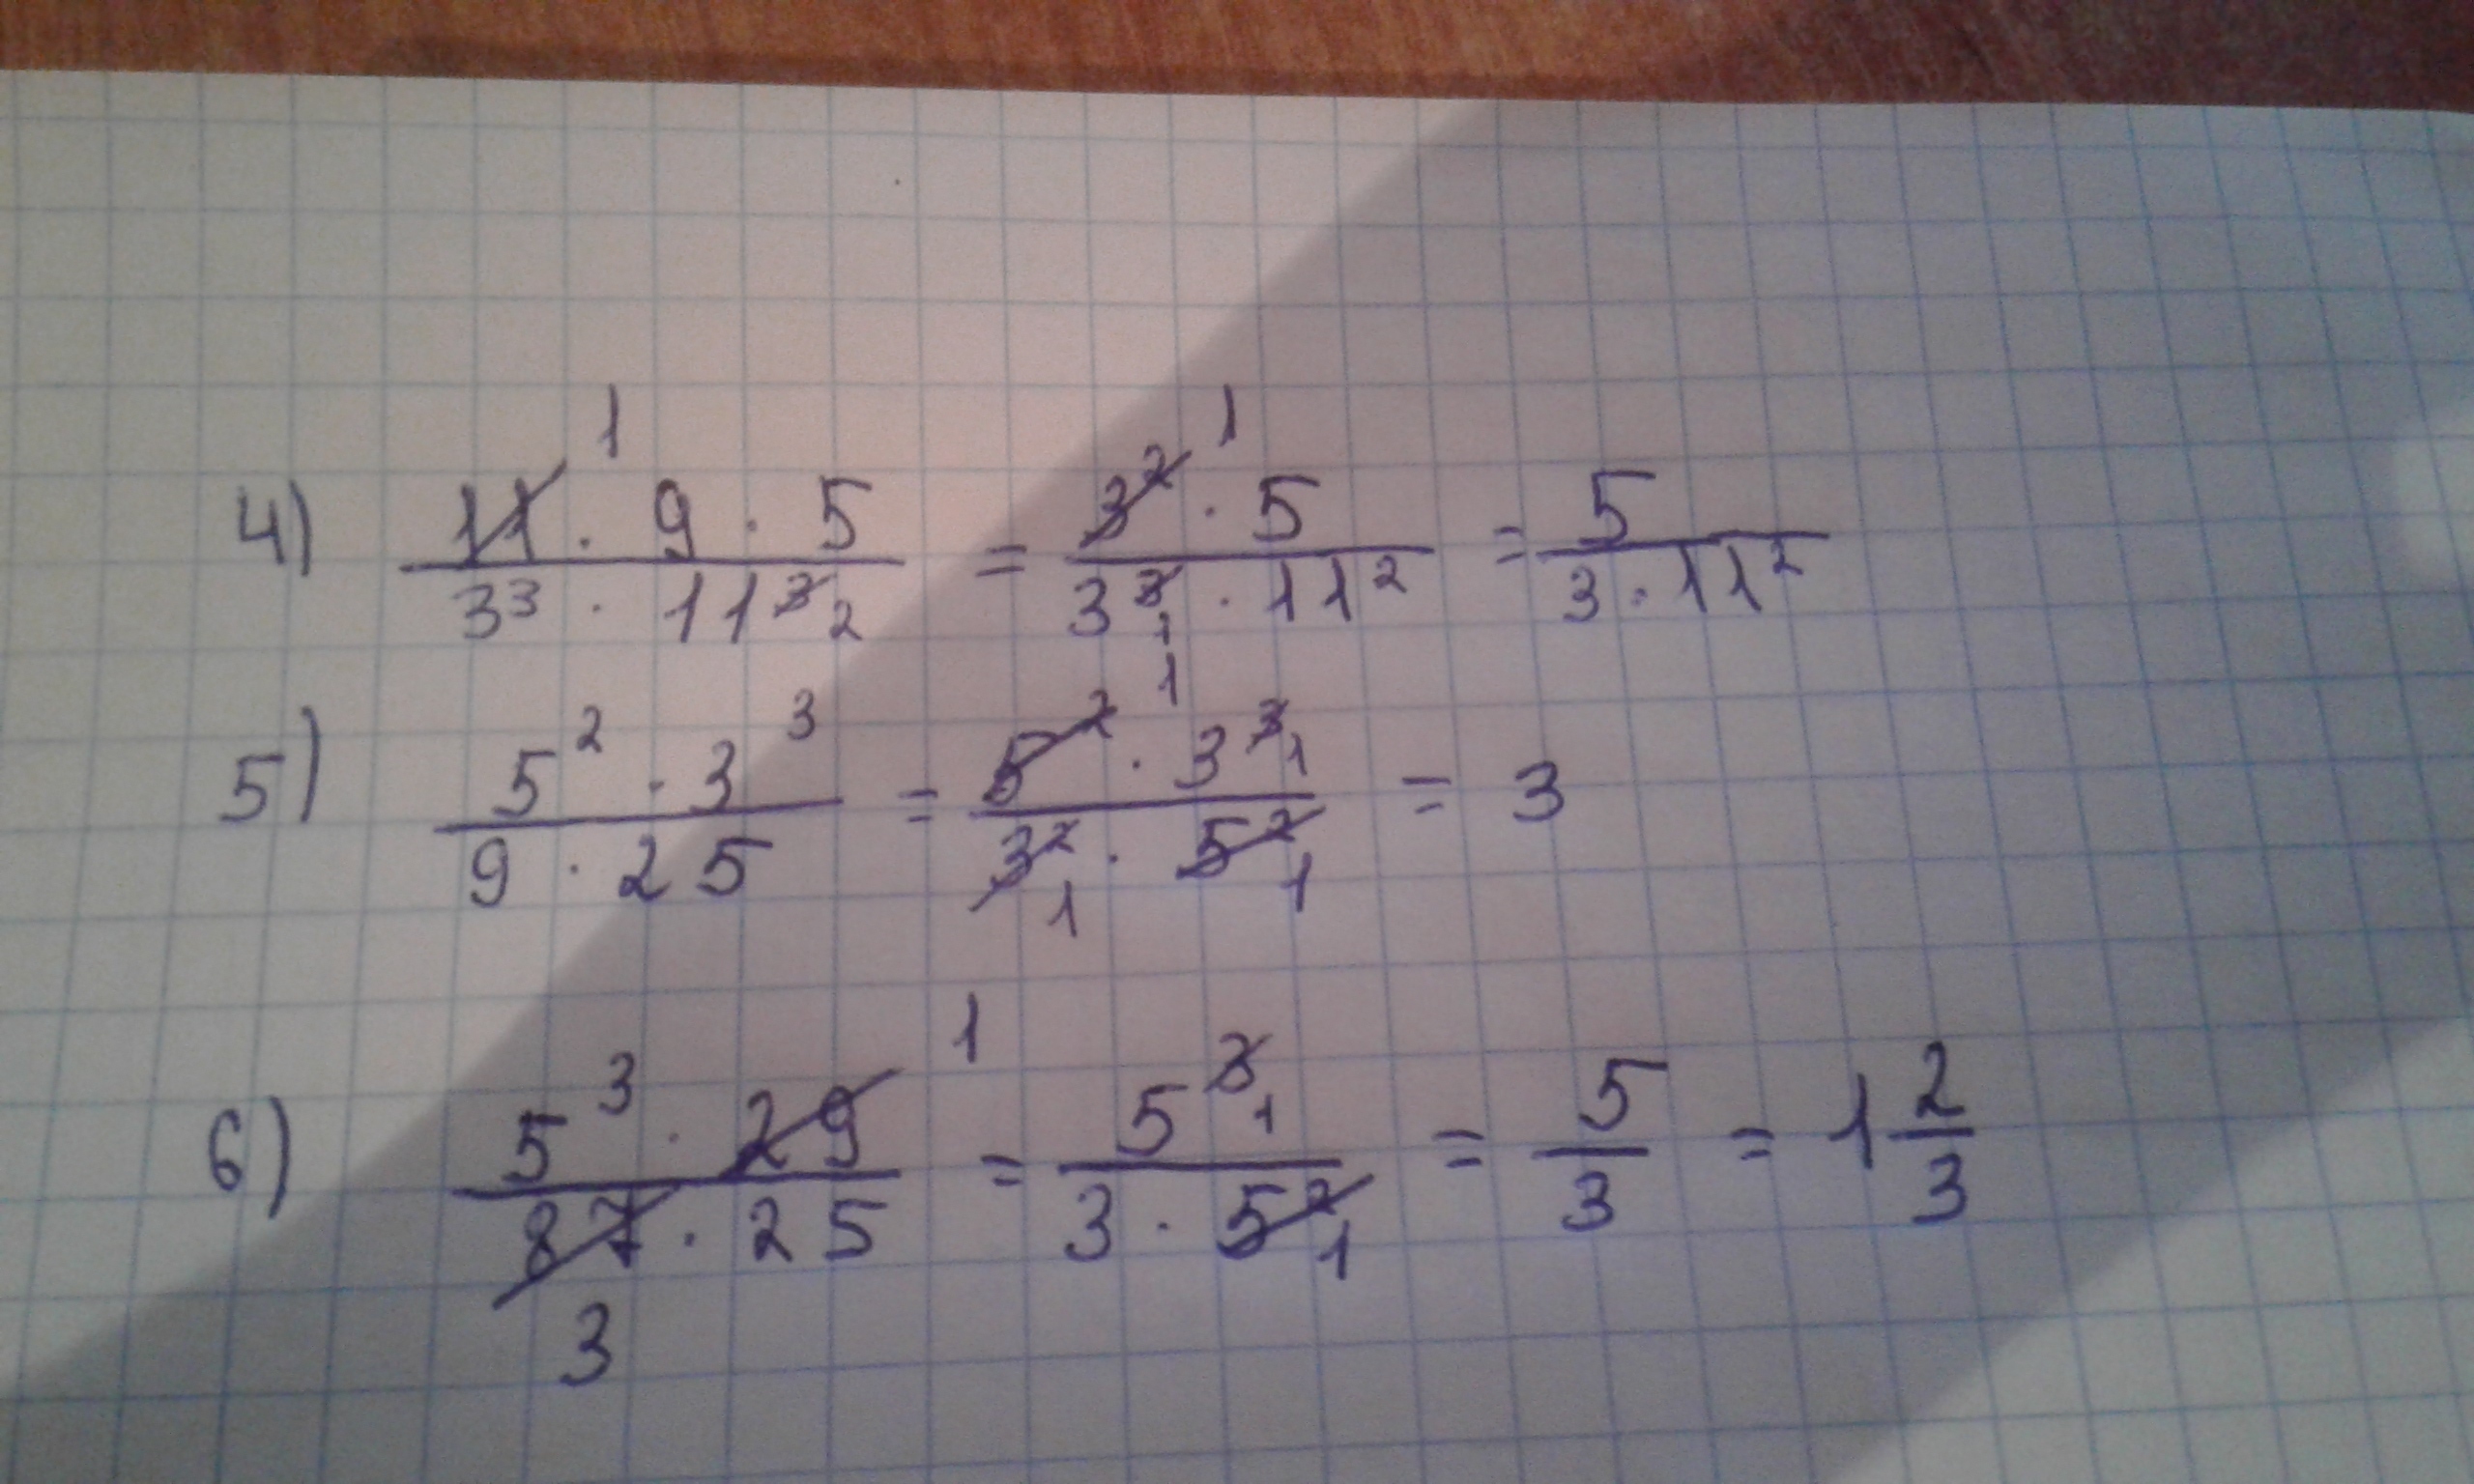 4) \frac{\cancel{11}^1 · 9 · 5}{3^3 · 11^{\cancel{3} 2}} = \frac{\cancel{3^2}^1 · 5}{3^{\cancel{3} 1} · 11^2} = \frac{5}{3 · 11^2}
5) \frac{5^2 · 3^3}{9 · 25} = \frac{\cancel{5^2}^1 · 3^{\cancel{3} 1}}{\cancel{3^2}_1 · \cancel{5^2}_1} = 3
6) \frac{5^3 · \cancel{29}^1}{\cancel{87}_3 · 25} = \frac{5^{\cancel{3} 1}}{3 · \cancel{5^2}_1} = \frac{5}{3} = 1\frac{2}{3}